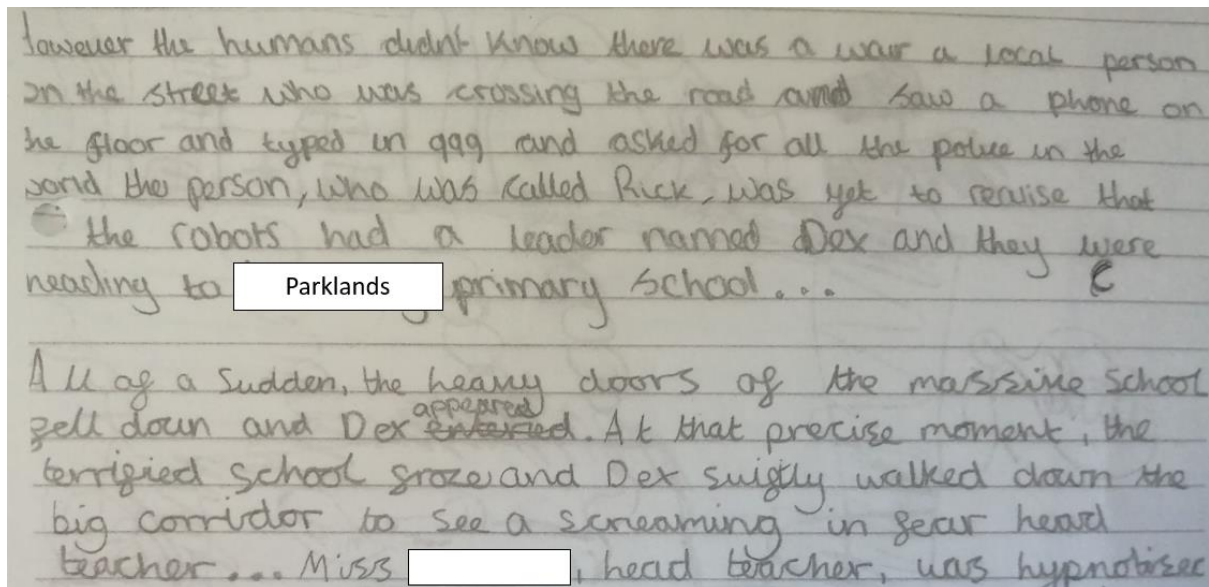 However the humans didnt know there was a warr a local person
on the street who was crossing the road and saw a phone on
the floor and typed in 999 and asked for all the police in the
world the person, who was called Rick, was yet to reruise that
the robots had a leader named Dex and they were
heading to Parklands primary school...
All of a sudden, the heavy doors of the massive school
fell down and Dex entered appeared. At that precise moment, the
terrified school froze and Dex swiftly walked down the
big corridor to see a screaming in fear head
teacher... Miss , head teacher, was hypnotised